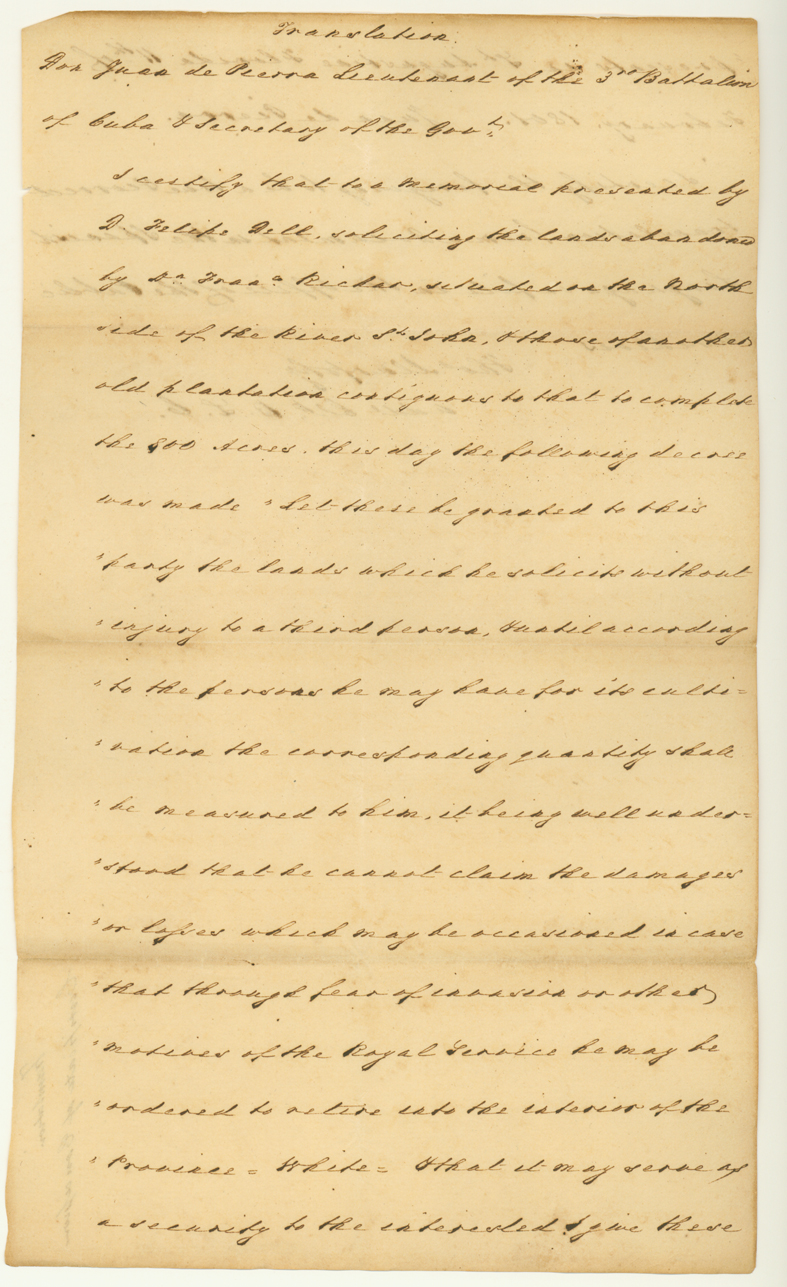 Translation.
Don Juan de Pierra Lieutenant of the 3rd Battalion
of Cuba & Secretary of the Govt.
I certify that to a Memorial presented by
D. Felipe Dell, soliciting the lands abandoned
by Da. Franca. Richar, situated on the North
side of the River St. John, & those of another
old plantation contiguous to that to complete
the 800 Acres. this day the following decree
was made "Let there be granted to this
"party the lands which he solicits without
"injury to a third person, & until according
"to the persons he may have for its culti=
"vation the corresponding quantity shall
"be measured to him, it being well under=
"stood that he cannot claim the damages
"or losses which may be occasioned in case
"that through fear of invasion or other
"motives of the Royal Service he may be
"ordered to retire into the interior of the
"Province = White = & that it may serve as
a security to the interested I give these